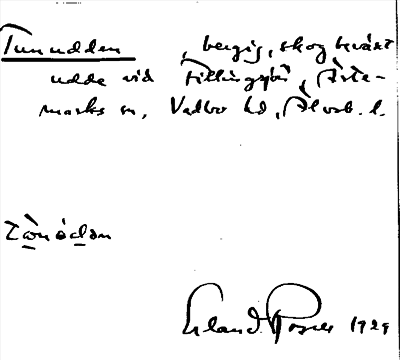 Tunudden, bergig, skogbeväxt
udde vid Fillingsjön, Ärte-
marks sn, Vadbo hd, Älvsb. l.
Erland Rosell 1929